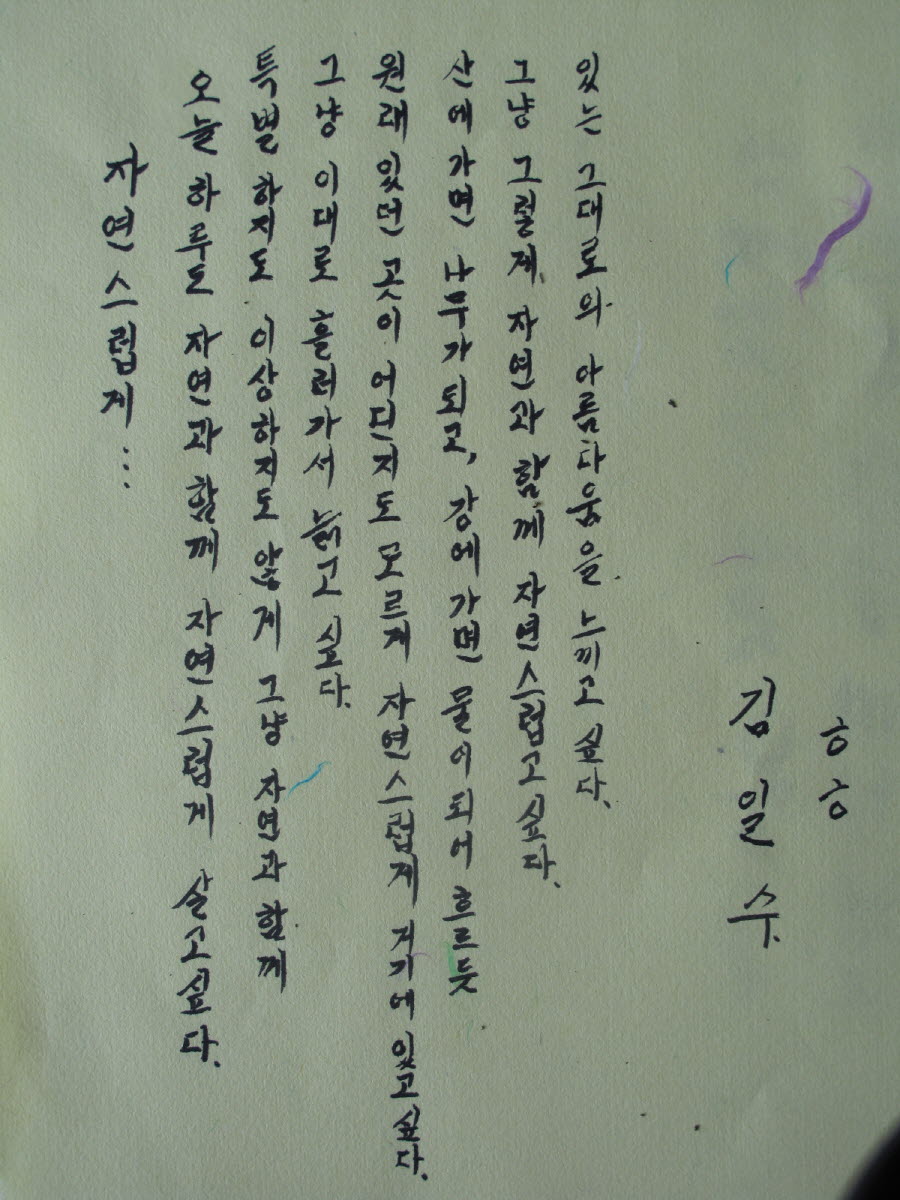 ㅎㅎ
김일수.
있는 그대로의 아름다움을 느끼고 싶다.
그냥 그렇게 자연과 함께 자연스럽고싶다.
산에가면 나무가되고, 강에가면 물이되어 흐르듯
원래 있던 곳이 어딘지도 모르게 자연스럽게 거기에있고싶다.
그냥 이대로 흘러가서 늙고 싶다.
특별 하지도 이상하지도 않게 그냥 자연과 함께
오늘 하루도 자연과 함께 자연스럽게 살고싶다.
자연스럽게...